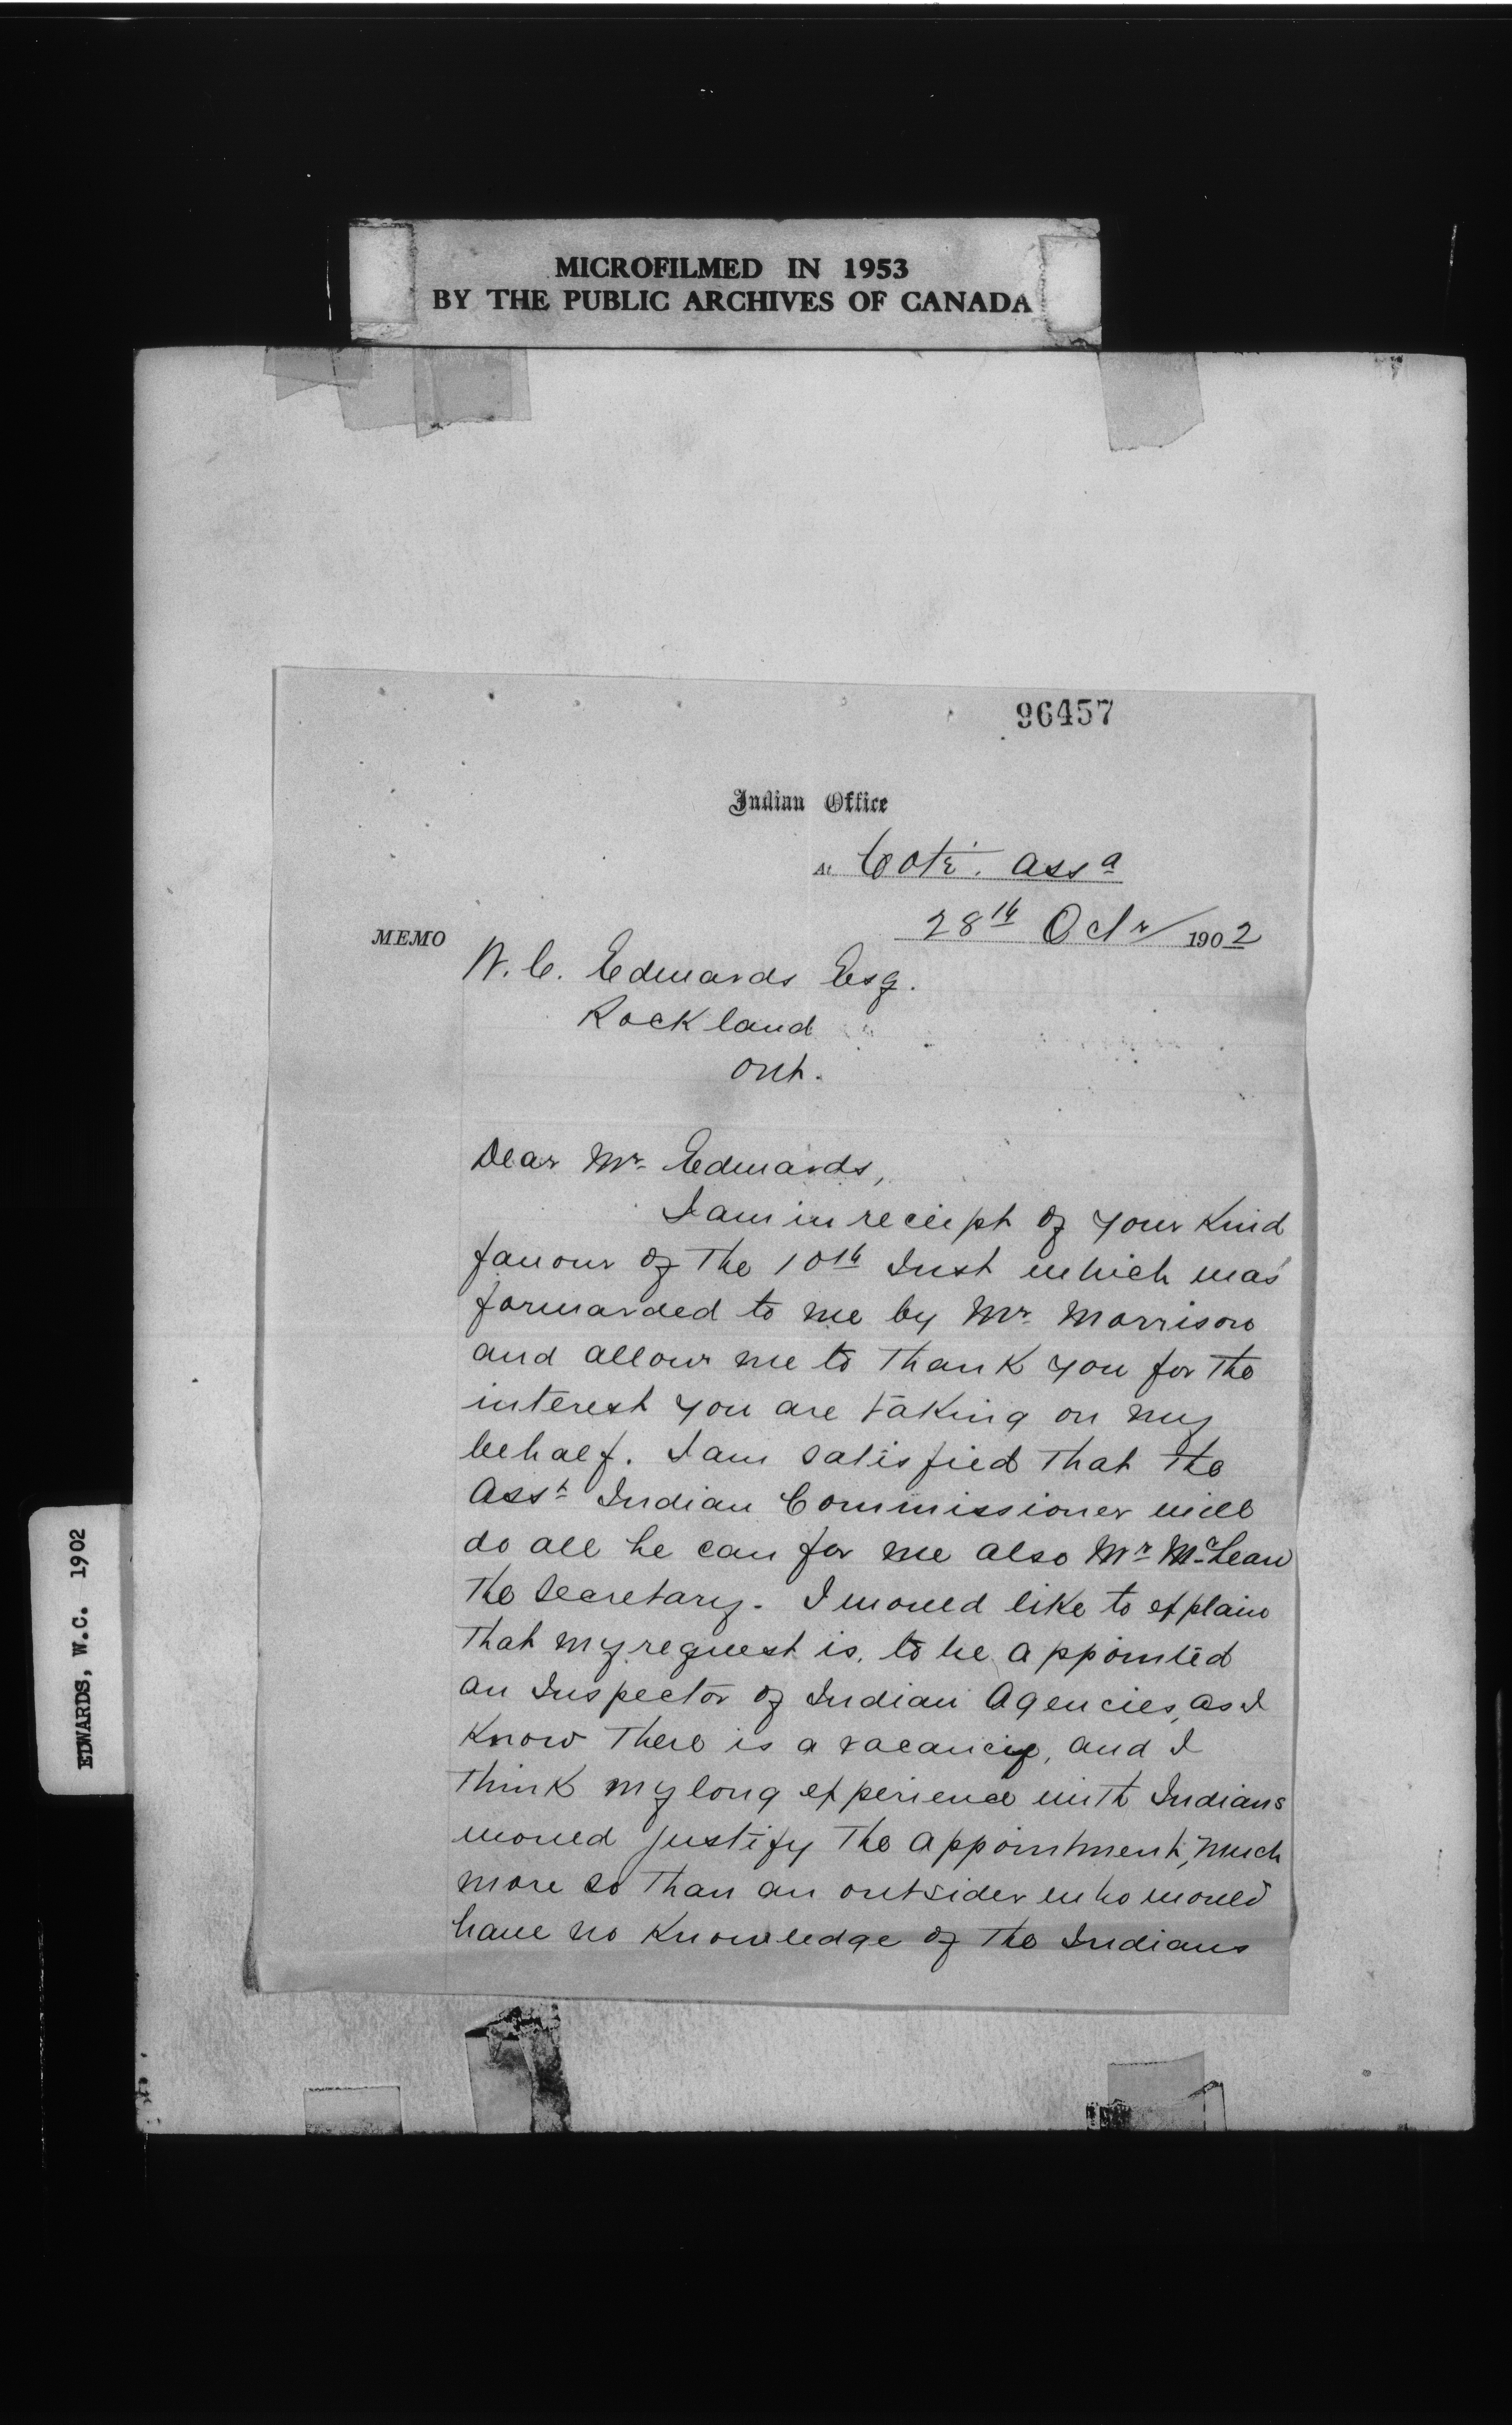 MICROFILMED IN 1953
BY THE PUBLIC ARCHIVES OF CANADA
96457
Indian Office
At Coté. Assa
28th Octr 1902
MEMO
W. C. Edwards Esq.
Rockland
Ont.
Dear Mr. Edwards,
I am in receipt of your kind
favour of the 10th Inst which was
forwarded to me by Mr. Morrison
and allow me to thank you for the
interest you are taking on my
behalf. I am satisfied that the
Asst Indian Commissioner will
do all he can for me also Mr McLean
the Secretary. I would like to explain
that my request is, to be appointed
an Inspector of Indian Agencies, as I
know there is a vacancy, and I
think my long experience with Indians
would justify the appointment, much
more so than an outsider who would
have no knowledge of the Indians
EDWARDS, W.C. 1902